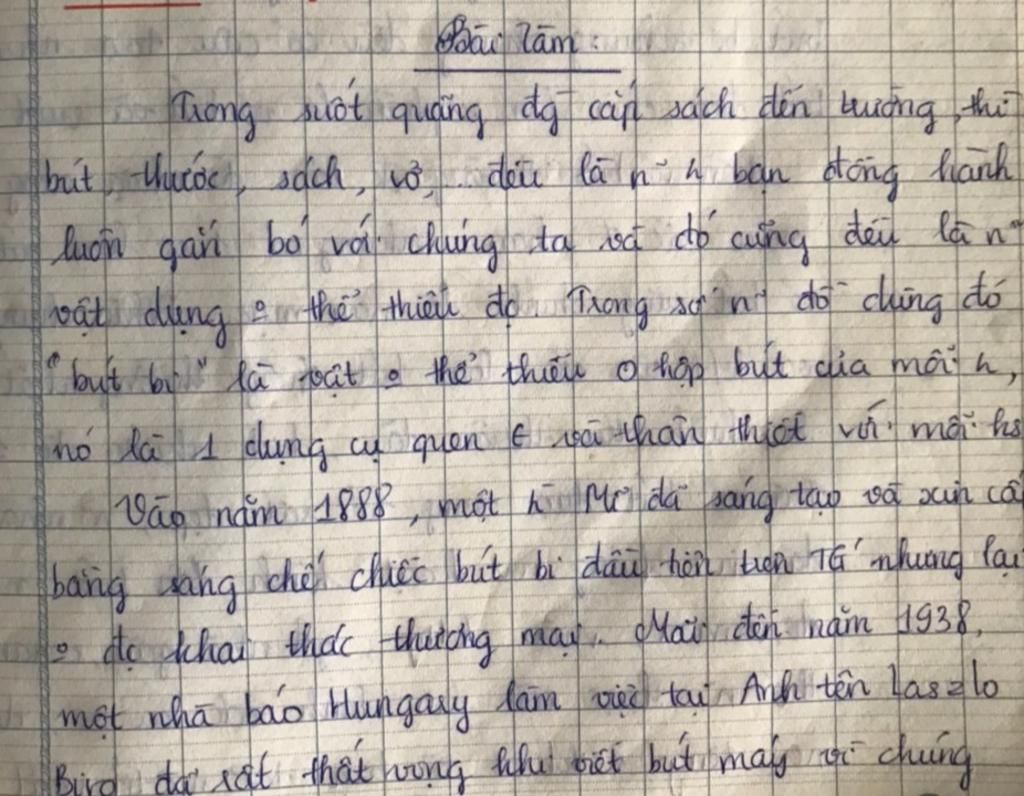 Bài làm:
Trong suốt quãng đg cắp sách đến trường, thì
bút, thước, sách, vở,... đều là n~ h bạn đồng hành
luôn gắn bó với chúng ta và đó cũng đều là n~
vật dụng o thể thiếu đc. Trong số n~ đồ dùng đó
"bút bi" là vật o thể thiếu ở hộp bút của mỗi h,
nó là 1 dụng cụ quen € và thân thiết với mỗi hs
Vào năm 1888, một h Mĩ đã sáng tạo và xin cấ
bằng sáng chế chiếc bút bi đầu tiên trên TG nhưng lại
o đc khai thác thương mại. Mãi đến năm 1938,
một nhà báo Hungary làm việc tại Anh tên Laszlo
Biro đã rất thất vọng khi viết bút máy vì chúng